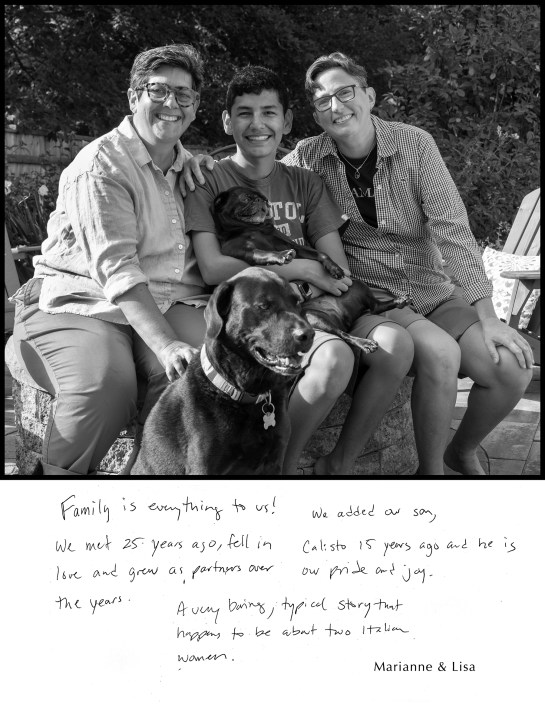 Family is everything to us!
We met 25 years ago, fell in
love and grew as partners over
the years.
We added our son,
Calisto 15 years ago and he is
our pride and joy.
A very boring, typical story that
happens to be about two Italian
women.
Marianne & Lisa